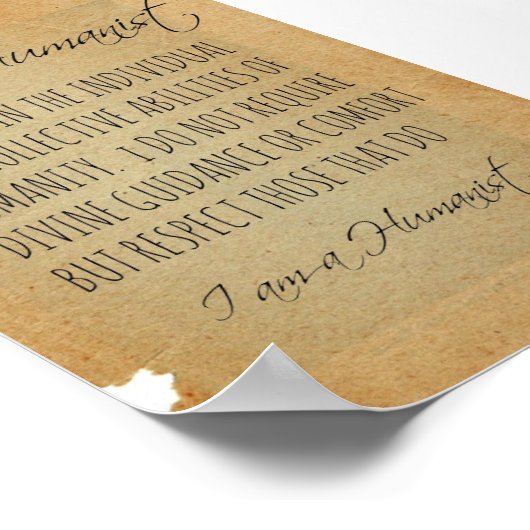 Humanist
IN THE INDIVIDUAL
COLLECTIVE ABILITIES OF
MANITY. I DO NOT REQUIRE
DIVINE GUIDANCE OR COMFORT
BUT RESPECT THOSE THAT DO
I am a Humanist